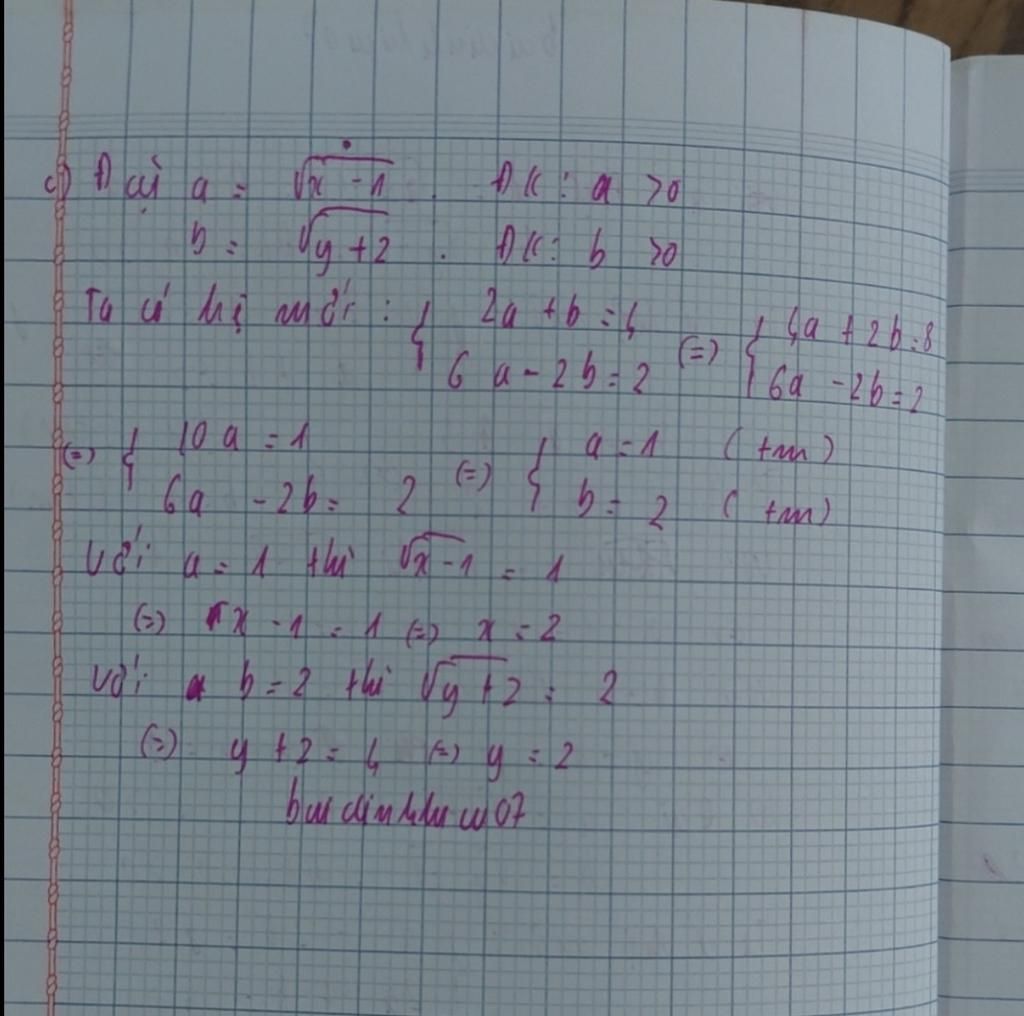 c) Đặt a = √(x - 1) . ĐK: a > 0
b = √(y + 2) . ĐK: b > 0
Ta có hệ mới: { 2a + b = 4 ; 6a - 2b = 2 (=) { 4a + 2b = 8 ; 6a - 2b = 2
(=) { 10a = 1 ; 6a - 2b = 2 (=) { a = 1 (tm) ; b = 2 (tm)
Với a = 1 thì √(x - 1) = 1
(=) x - 1 = 1 (=) x = 2
Với b = 2 thì √(y + 2) = 2
(=) y + 2 = 4 (=) y = 2